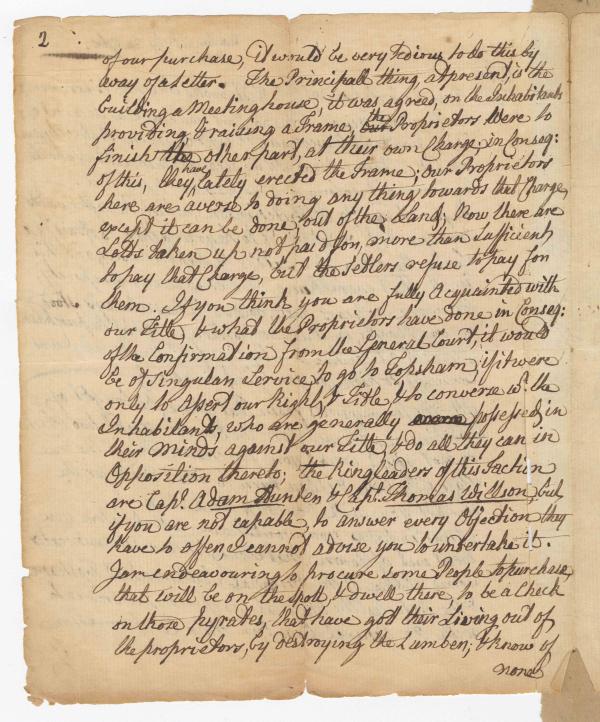 2
of our purchase, it would be very tedious to do this by
way of a Letter. The Principall thing, at present, is the
building a Meetinghouse, it was agreed, on the Inhabitants
providing & raising a Frame, the Proprietors were to
finish the other part, at their own Charge, in Conseq:
of this, they have lately erected the Frame; our Proprietors
here are averse to doing any thing towards that Charge,
except it can be done, out of the Land; Now there are
Lotts taken up not paid for, more than sufficient,
to pay that Charge, but the Setlers refuse to pay for
them. If you think you are fully Acquainted with
our Title & what the Proprietors have done in Conseq:
of the Confirmation from the General Court, it would
be of Singular Service, to go to Topsham; if it were
only to Assert our Right & Title, & to converse wth. the
Inhabitants, who are generally possessed, in
their minds against our Title, & do all they can in
Opposition thereto; the Ringleaders of this Faction
are Capt. Adam Hunter & Capt. Thomas Willson, but
if you are not capable, to answer every Objection they
have to offer, I cannot advise you to undertake it.
I am endeavouring to procure some People to purchase,
that will be on the spott, & dwell there, to be a Check
on those pyrates, that have gott their Living out of
the proprietors, by destroying the Lumber; & know of
none